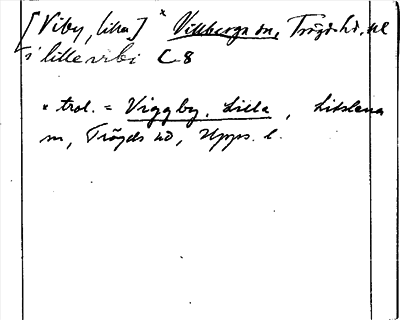 [Viby, Lilla] × Villberga sn, Trögds hd, Ul
i lille vibi C 8
× trol. = Viggby, Lilla, Litslena
sn, Trögds hd, Upps. l.